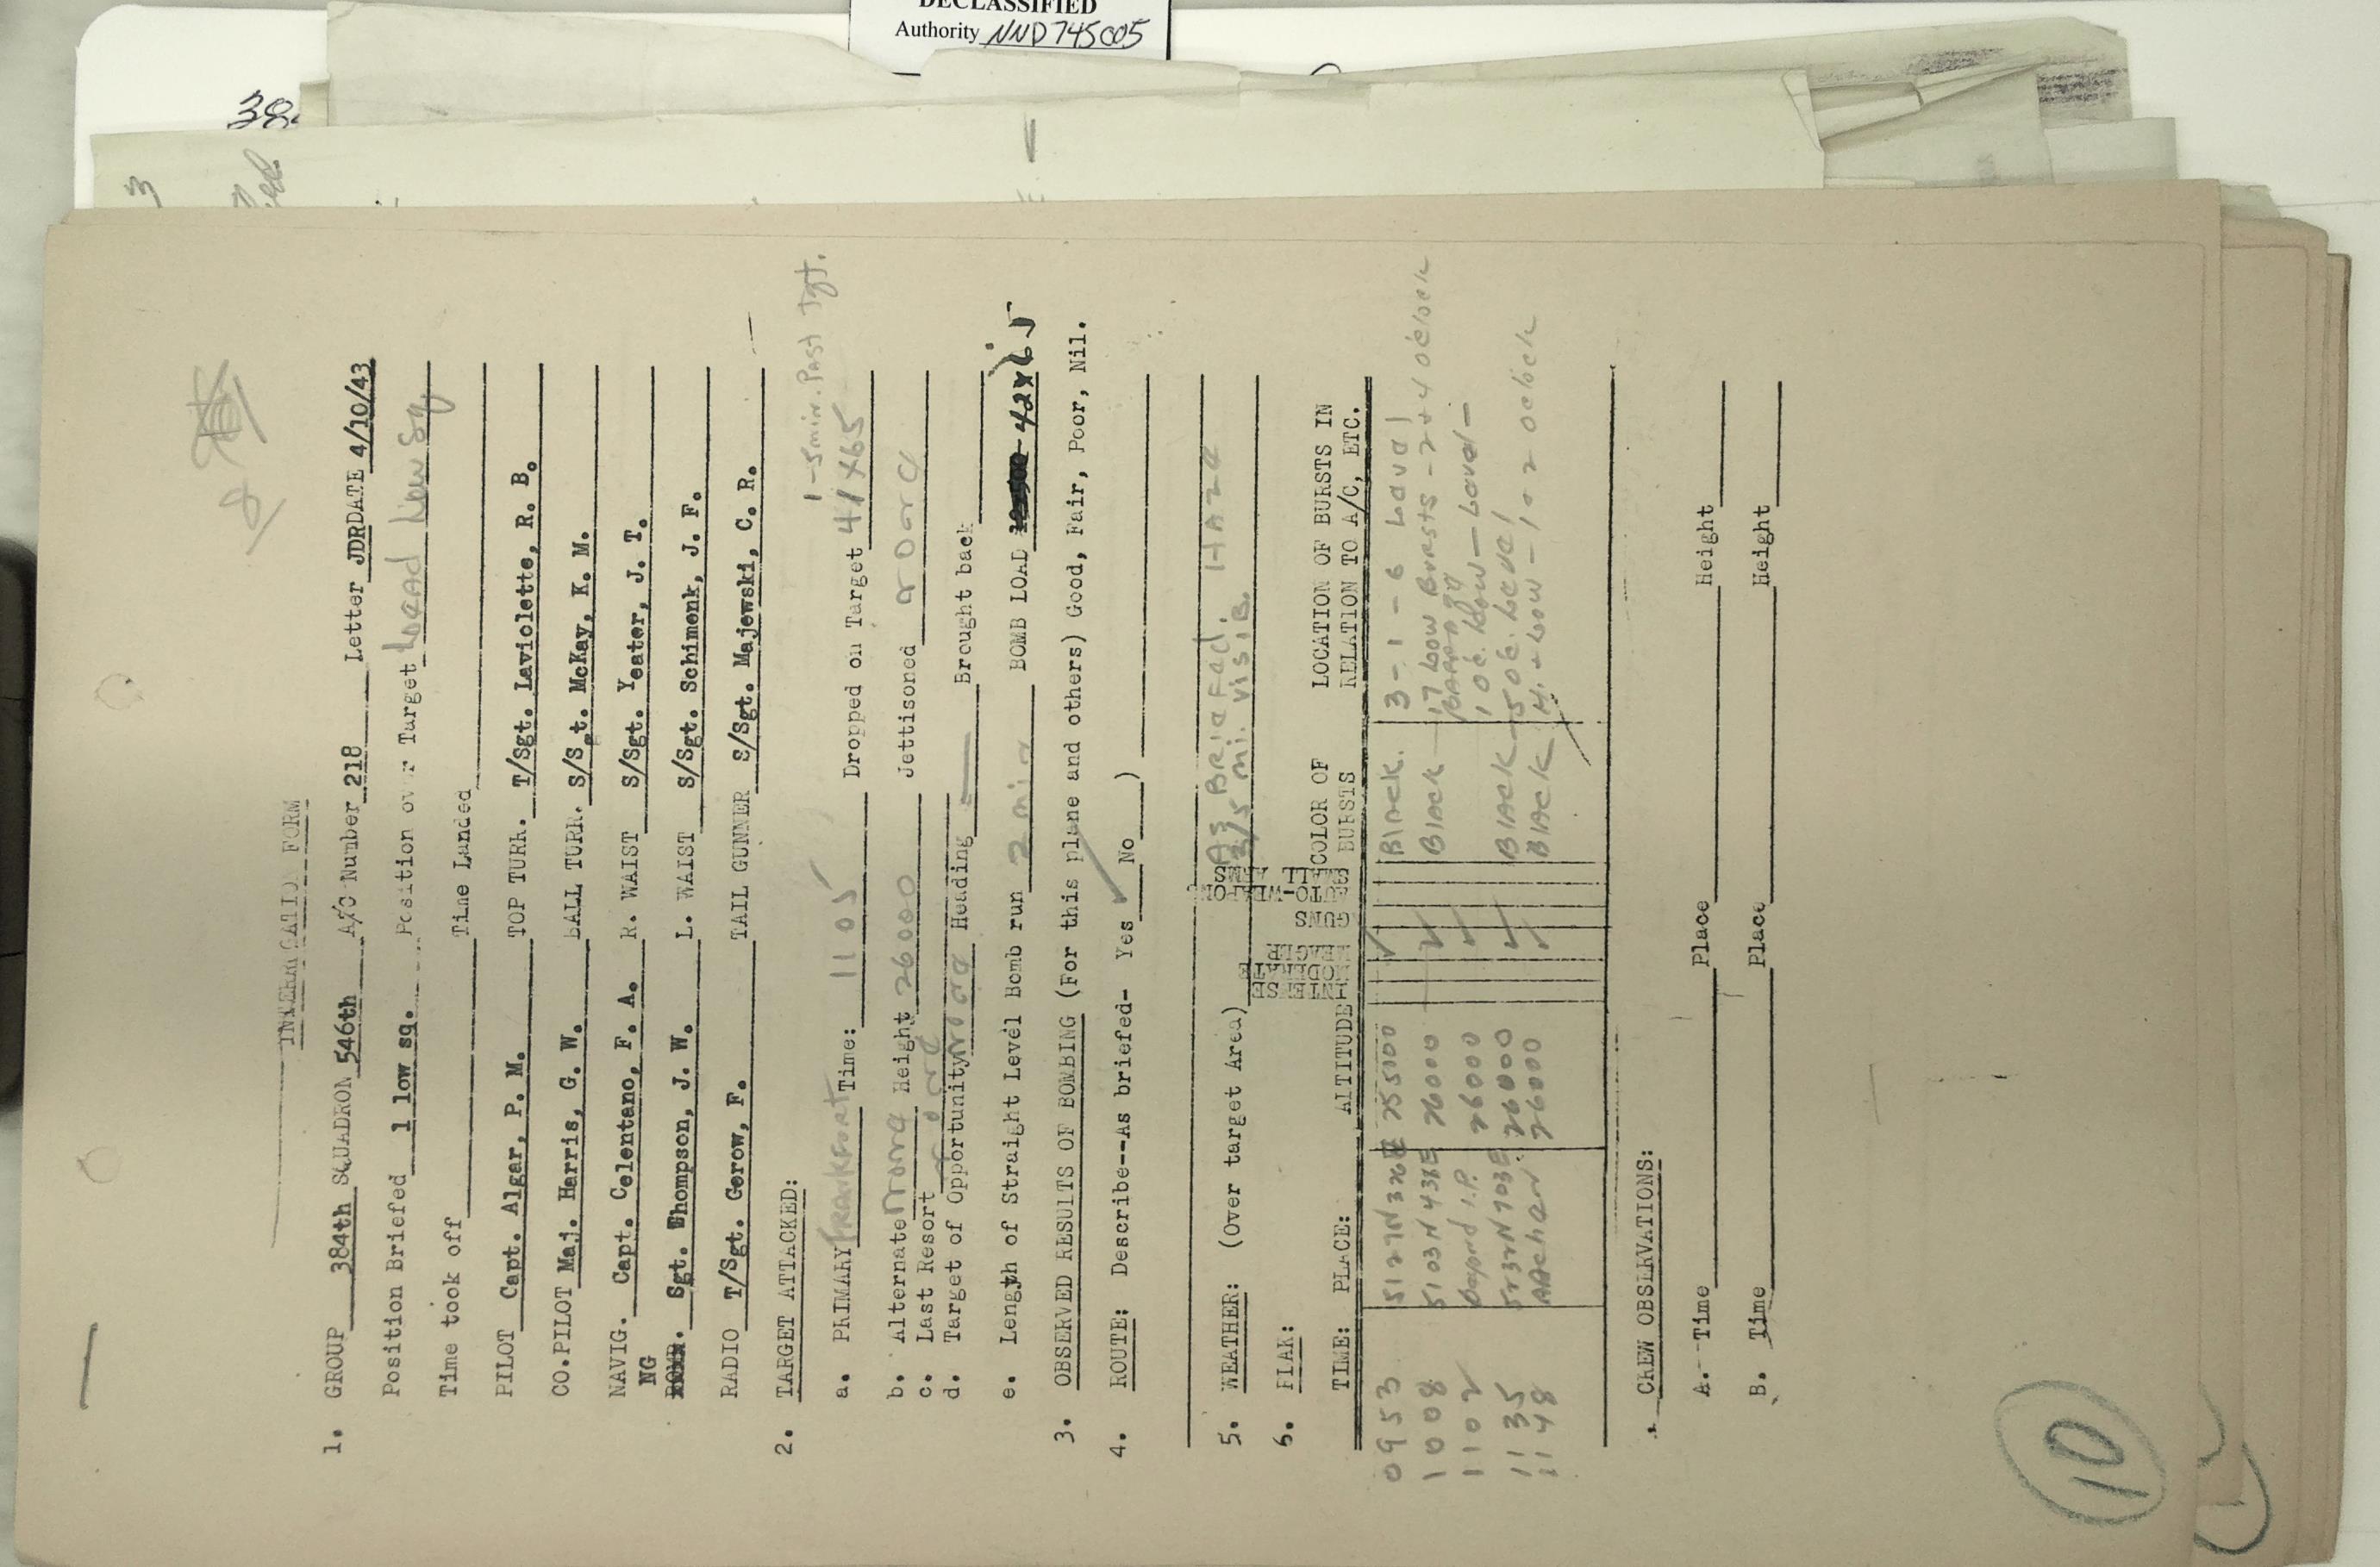 DECLASSIFIED
Authority NND 745005
3
INTERROGATION FORM
1. GROUP 384th SQUADRON 546th A/C Number 218 Letter JDR DATE 4/10/43
Position Briefed 1 low sq. Position over Target Lead Low Sq.
Time took off Time Landed
PILOT Capt. Algar, P. M. TOP TURR. T/Sgt. Laviolette, R. B.
CO.PILOT Maj. Harris, G. W. BALL TURR. S/Sgt. McKay, K. M.
NAVIG. Capt. Celentano, F. A. R. WAIST S/Sgt. Yeater, J. T.
NG
BOMB. Sgt. Thompson, J. W. L. WAIST S/Sgt. Schimonk, J. F.
RADIO T/Sgt. Gerow, F. TAIL GUNNER S/Sgt. Majewski, C. R.
2. TARGET ATTACKED:
1-5min. Past Tgt.
a. PRIMARY Frankfort Time: 1105 Dropped on Target 41X65
b. Alternate None Height 26000 Jettisoned none
c. Last Resort none
d. Target of Opportunity none Heading Brought back
e. Length of Straight Level Bomb run 2 min BOMB LOAD 42X65
3. OBSERVED RESULTS OF BOMBING (For this plane and others) Good, Fair, Poor, Nil.
4. ROUTE: Describe--As briefed- Yes ✓ No )
5. WEATHER: (Over target Area) As Briefed. HAZE
3/5 mi. visib.
6. FLAK:
TIME: PLACE: ALTITUDE INTENSE MODERATE MEAGER GUNS AUTO-WEAPON COLOR OF BURSTS LOCATION OF BURSTS IN RELATION TO A/C, ETC.
0953 5127N 326E 255000 ✓ Black. 3-1-6 Level
1008 5103N 438E 26000 ✓ Black 17 Low Bursts-2+4 oclock
1102 I.P. 26000 ✓ 1 oc. Low - Level -
1135 26000 ✓ Black 5 oc. Level
1148 Aachen 26000 ✓ Black Low - 1 or 2 oclock
CREW OBSERVATIONS:
A. Time Place Height
B. Time Place Height
10